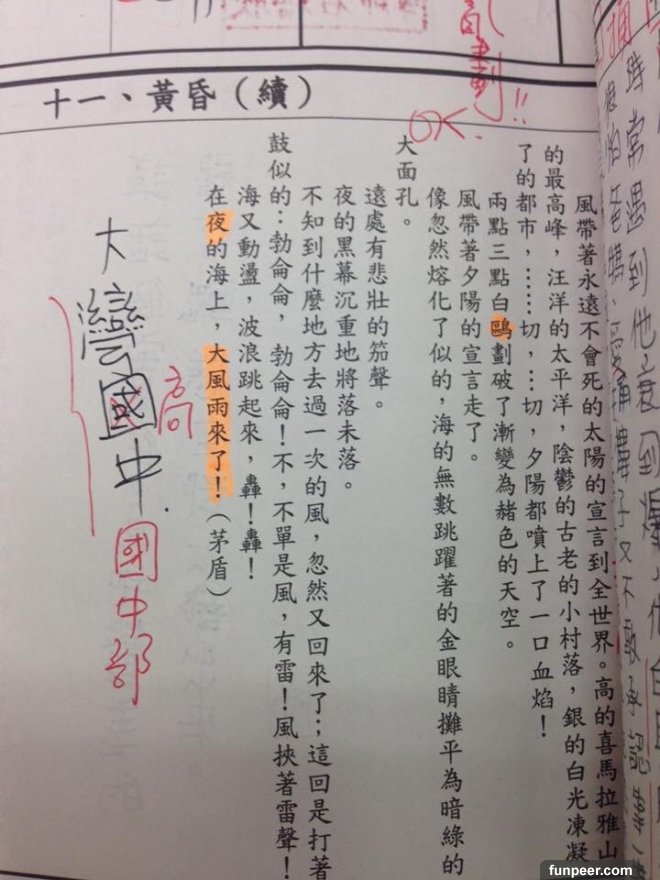 十一、黃昏（續）
!!
OK.
時常遇到他
風帶著永遠不會死的太陽的宣言到全世界。高的喜馬拉雅山
的最高峰，汪洋的太平洋，陰鬱的古老的小村落，銀的白光凍凝
了的都市，……切，…切，夕陽都噴上了一口血焰！
兩點三點白鷗劃破了漸變為赭色的天空。
風帶著夕陽的宣言走了。
像忽然熔化了似的，海的無數跳躍著的金眼睛攤平為暗綠的
大面孔。
遠處有悲壯的笳聲。
夜的黑幕沉重地將落未落。
不知到什麼地方去過一次的風，忽然又回來了；這回是打著
鼓似的：勃侖侖，勃侖侖！不，不單是風，有雷！風挾著雷聲！
海又動盪，波浪跳起來，轟！轟！
在夜的海上，大風雨來了！（茅盾）
高
國中部
大灣國中.
funpeer.com